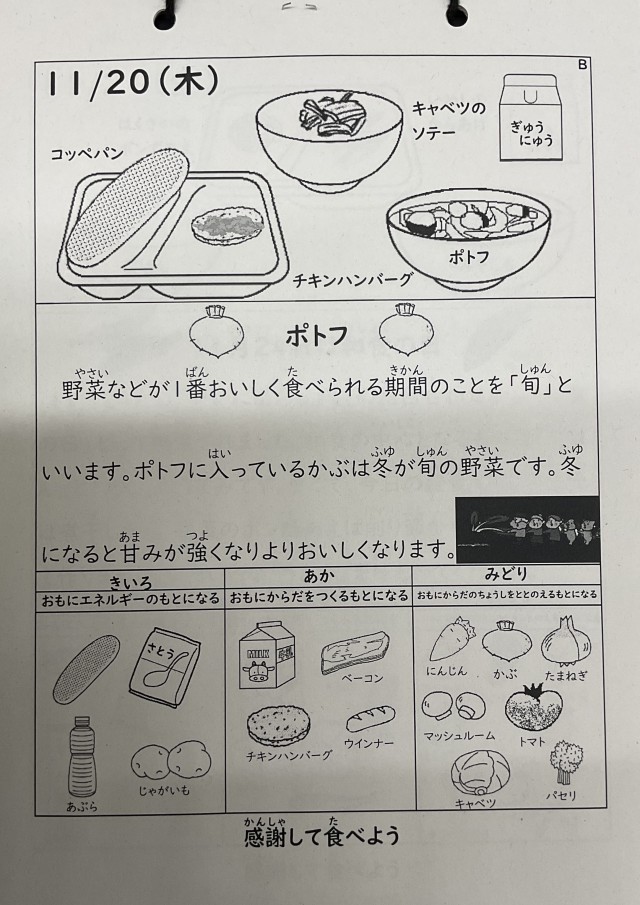 B
11/20(木)
キャベツの
ソテー
ぎゅう
にゅう
コッペパン
ポトフ
チキンハンバーグ
ポトフ
野菜などが1番おいしく食べられる期間のことを「旬」と
やさい ばん た きかん しゅん
いいます。ポトフに入っているかぶは冬が旬の野菜です。冬
はい ふゆ しゅん やさい ふゆ
になると甘みが強くなりよりおいしくなります。
あま つよ
きいろ
おもにエネルギーのもとになる
あか
おもにからだをつくるもとになる
みどり
おもにからだのちょうしをととのえるもとになる
さとう
あぶら
じゃがいも
MILK
ベーコン
チキンハンバーグ
ウインナー
にんじん
かぶ
たまねぎ
マッシュルーム
トマト
キャベツ
パセリ
感謝して食べよう
かんしゃ た